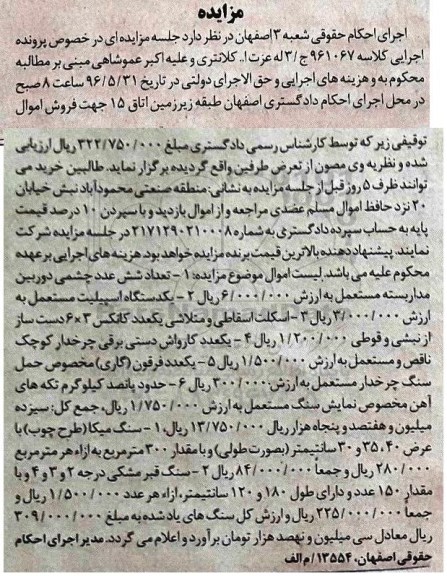 مزایده
اجرای احکام حقوقی شعبه ۳ اصفهان در نظر دارد جلسه مزایده ای در خصوص پرونده
اجرایی کلاسه ۹۶۱۰۶۷ج/۳ له عزت ا.. کلانتری و علیه اکبر عموشاهی مبنی بر مطالبه
محکوم به و هزینه های اجرایی و حق الاجرای دولتی در تاریخ ۹۶/۵/۳۱ ساعت ۸ صبح
در محل اجرای احکام دادگستری اصفهان طبقه زیرزمین اتاق ۱۵ جهت فروش اموال
توقیفی زیر که توسط کارشناس رسمی دادگستری مبلغ ۳۲۲/۷۵۰/۰۰۰ ریال ارزیابی
شده و نظریه وی مصون از تعرض طرفین واقع گردیده برگزار نماید. طالبین خرید می
توانند ظرف ۵ روز قبل از جلسه مزایده به نشانی: منطقه صنعتی محمودآباد نبش خیابان
۲۰ نزد حافظ اموال مسلم عضدی مراجعه و از اموال بازدید و با سپردن ۱۰ درصد قیمت
پایه به حساب سپرده دادگستری به شماره ۲۱۷۱۲۹۰۲۱۰۰۰۸ در جلسه مزایده شرکت
نمایند. پیشنهاد دهنده بالاترین قیمت برنده مزایده خواهد بود. هزینه های اجرایی بر عهده
محکوم علیه می باشد. لیست اموال موضوع مزایده: ۱- تعداد شش عدد چشمی دوربین
مداربسته مستعمل به ارزش ۶/۰۰۰/۰۰۰ ریال ۲- یکدستگاه اسپیلیت مستعمل به
ارزش ۳/۰۰۰/۰۰۰ ریال ۳- اسکلت اسقاطی و متلاشی یکعدد کانکس ۳×۶ دست ساز
از نبشی و قوطی ۱/۲۰۰/۰۰۰ ریال ۴- یکعدد کارواش دستی برقی چرخدار کوچک
ناقص و مستعمل به ارزش ۱/۵۰۰/۰۰۰ ریال ۵- یکعدد فرقون (گاری) مخصوص حمل
سنگ چرخدار مستعمل به ارزش ۳۰۰/۰۰۰ ریال ۶- حدود پانصد کیلوگرم تکه های
آهن مخصوص نمایش سنگ مستعمل به ارزش ۱/۷۵۰/۰۰۰ ریال، جمع کل: سیزده
میلیون و هفتصد و پنجاه هزار ریال ۱۳/۷۵۰/۰۰۰ ریال، ۱- سنگ میکا (طرح چوب) با
عرض ۳۵،۴۰ و ۳۰ سانتیمتر (بصورت طولی) و با مقدار ۳۰۰ مترمربع به ازاء هر مترمربع
۲۸۰/۰۰۰ ریال و جمعاً ۸۴/۰۰۰/۰۰۰ ریال ۲- سنگ قبر مشکی درجه ۲ و ۳ و ۴ و با
مقدار ۱۵۰ عدد و دارای طول ۱۸۰ و ۱۲۰ سانتیمتر، ازاء هر عدد ۱/۵۰۰/۰۰۰ ریال و
جمعاً ۲۲۵/۰۰۰/۰۰۰ ریال و ارزش کل سنگ های یاد شده به مبلغ ۳۰۹/۰۰۰/۰۰۰
ریال معادل سی میلیون و نهصد هزار تومان برآورد و اعلام می گردد. مدیر اجرای احکام
حقوقی اصفهان، ۱۳۵۵۴/م الف